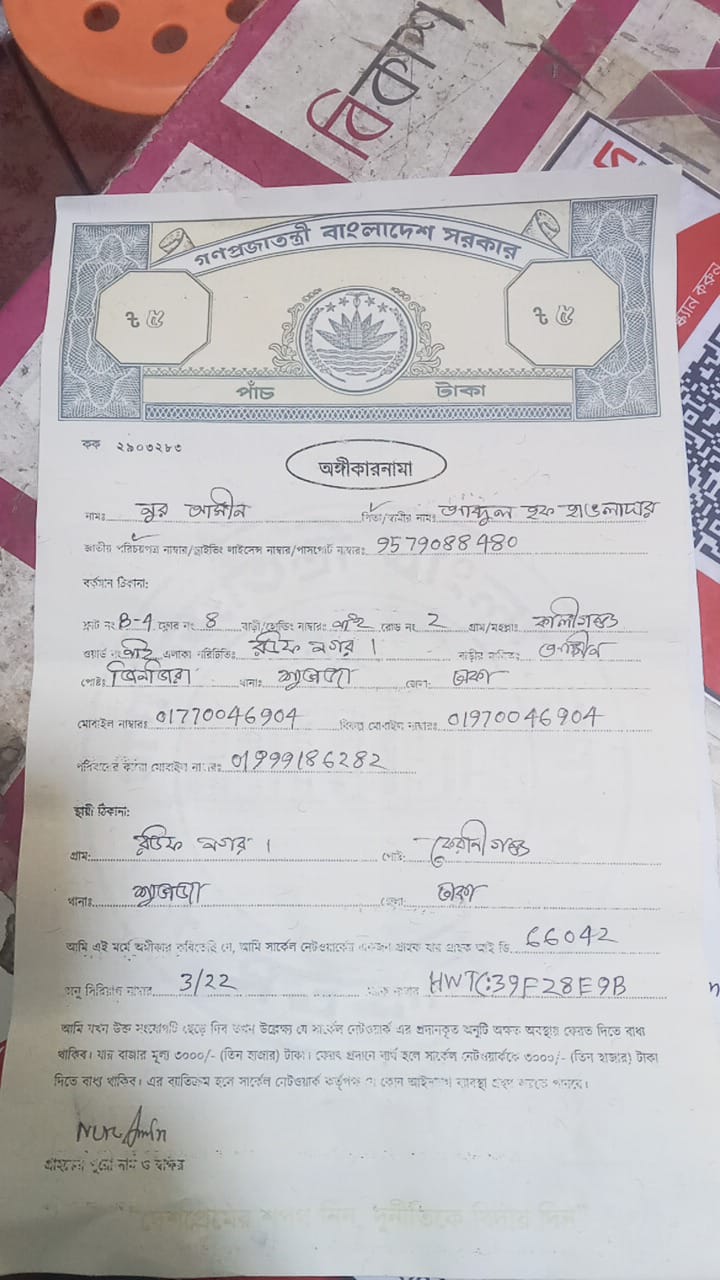 বিকাশ
গণপ্রজাতন্ত্রী বাংলাদেশ সরকার
৳ ৫ ৳ ৫
পাঁচ টাকা
কক ২৯০৩২৮৩
অঙ্গীকারনামা
নামঃ নুর আমীন পিতা/স্বামীর নামঃ আব্দুল হক হাওলাদার
জাতীয় পরিচয়পত্র নাম্বার/ড্রাইভিং লাইসেন্স নাম্বার/পাসপোর্ট নাম্বারঃ 9579088480
বর্তমান ঠিকানা:
ফ্লাট নং B-4 ফ্লোর নং 8 বাড়ী/হোল্ডিং নাম্বারঃ নাই রোড নং 2 গ্রাম/মহল্লাঃ কালীগঞ্জ
ওয়ার্ড নং নাই এলাকা পরিচিতিঃ নগর। বাড়ীর মালিকঃ
পোষ্টঃ জিনজিরা থানাঃ জেলাঃ ঢাকা
মোবাইল নাম্বারঃ 01770046904 বিকল্প মোবাইল নাম্বারঃ 01970046904
পরিবারের কারো মোবাইল নাম্বারঃ 01999186282
স্থায়ী ঠিকানা:
গ্রাম: নগর। পোষ্ট: কেরানীগঞ্জ
থানাঃ জেলা: ঢাকা
আমি এই মর্মে অঙ্গীকার করিতেছি যে, আমি সার্কেল নেটওয়ার্কের একজন গ্রাহক যার গ্রাহক আই ডি. 66042
অনু সিরিয়াল নাম্বার 3/22 নাম্বার HWTC:39F28E9B
আমি যখন উক্ত সংযোগটি ছেড়ে দিব তখন উল্লেখ্য যে সার্কেল নেটওয়ার্ক এর প্রদানকৃত অনুটি অক্ষত অবস্থায় ফেরত দিতে বাধ্য
থাকিব। যার বাজার মূল্য ৩০০০/- (তিন হাজার) টাকা। ফেরৎ প্রদানে ব্যর্থ হলে সার্কেল নেটওয়ার্ককে ৩০০০/- (তিন হাজার) টাকা
দিতে বাধ্য থাকিব। এর ব্যতিক্রম হলে সার্কেল নেটওয়ার্ক কর্তৃপক্ষ যে কোন আইনানুগ ব্যবস্থা গ্রহণ করতে পারবে।
Nur Amin
গ্রাহকের পুরো নাম ও স্বাক্ষর
"দেশপ্রেমের শপথ নিন, দুর্নীতিকে বিদায় দিন"